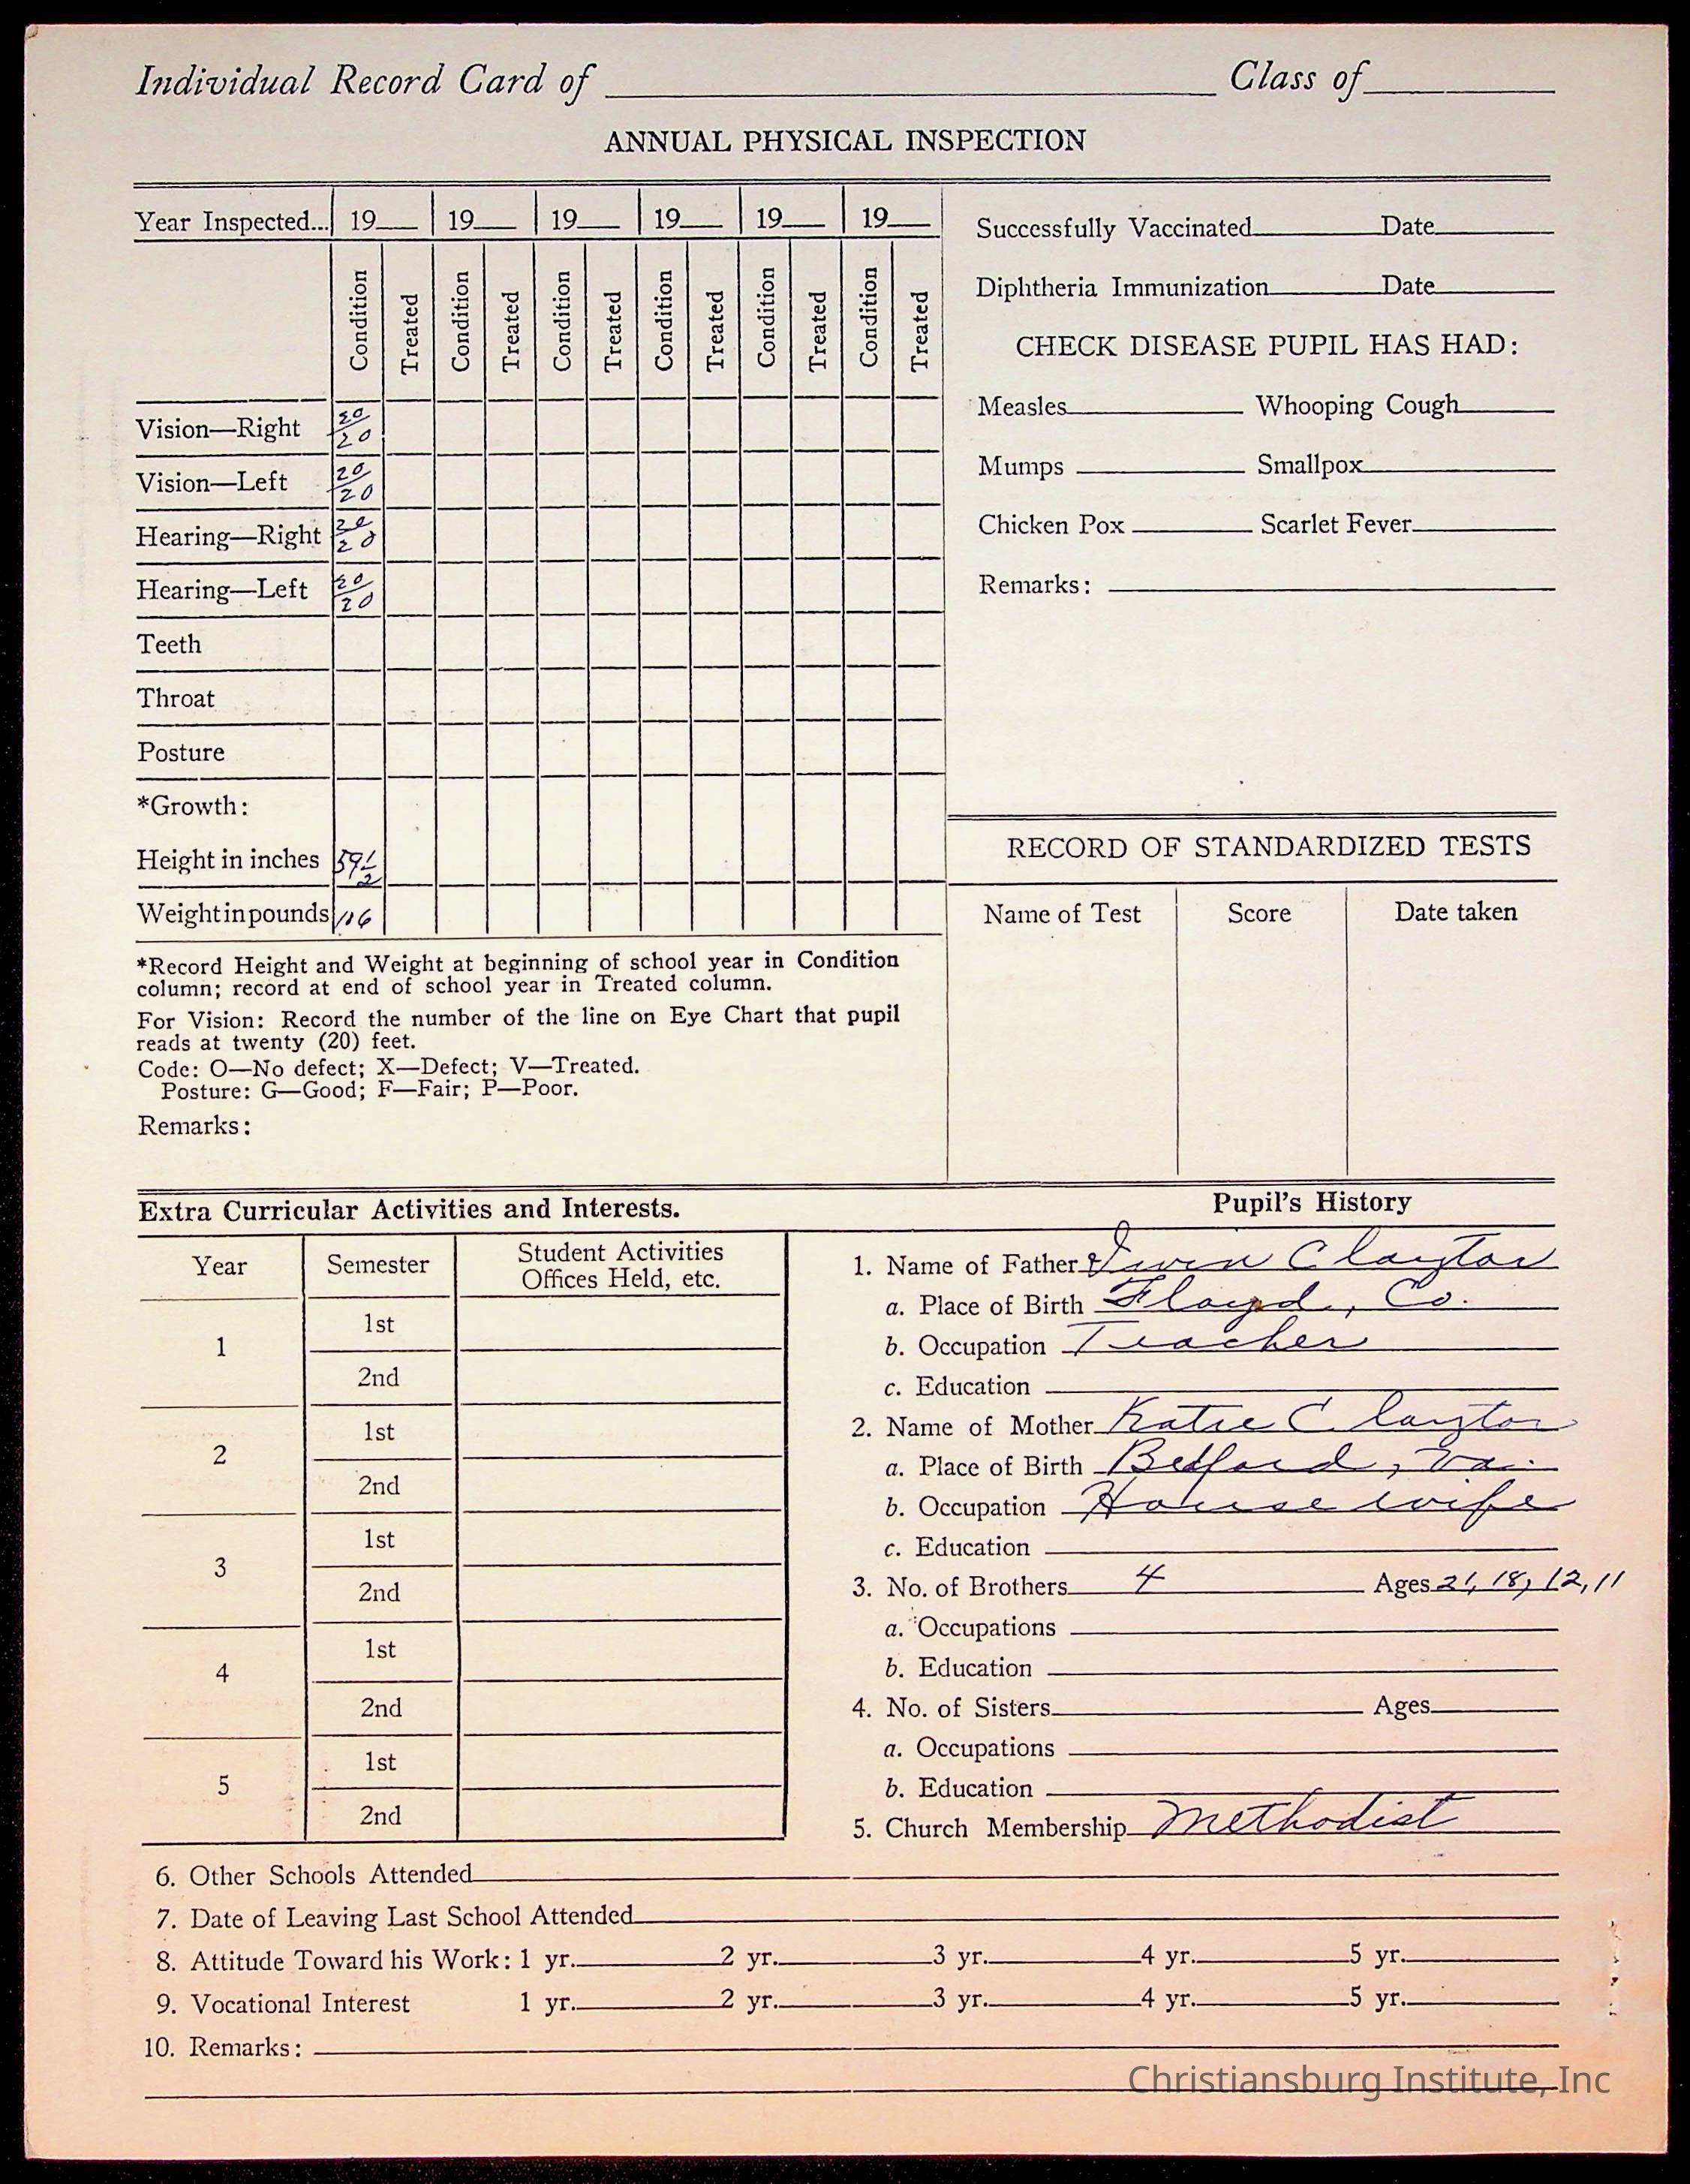 Individual Record Card of Class of
ANNUAL PHYSICAL INSPECTION
Year Inspected... 19 19 19 19 19 19
Condition Treated Condition Treated Condition Treated Condition Treated Condition Treated Condition Treated
Vision—Right 20/20
Vision—Left 20/20
Hearing—Right 20/20
Hearing—Left 20/20
Teeth
Throat
Posture
*Growth:
Height in inches 59 1/2
Weight in pounds 116
*Record Height and Weight at beginning of school year in Condition
column; record at end of school year in Treated column.
For Vision: Record the number of the line on Eye Chart that pupil
reads at twenty (20) feet.
Code: O—No defect; X—Defect; V—Treated.
Posture: G—Good; F—Fair; P—Poor.
Remarks:
Successfully Vaccinated Date
Diphtheria Immunization Date
CHECK DISEASE PUPIL HAS HAD:
Measles Whooping Cough
Mumps Smallpox
Chicken Pox Scarlet Fever
Remarks:
RECORD OF STANDARDIZED TESTS
Name of Test Score Date taken
Extra Curricular Activities and Interests.
Year Semester Student Activities
Offices Held, etc.
1 1st
2nd
2 1st
2nd
3 1st
2nd
4 1st
2nd
5 1st
2nd
Pupil's History
1. Name of Father Clayton
a. Place of Birth Floyd, Co.
b. Occupation Teacher
c. Education
2. Name of Mother Katie Clayton
a. Place of Birth Bedford, Va.
b. Occupation House wife
c. Education
3. No. of Brothers 4 Ages 21, 18, 12, 11
a. Occupations
b. Education
4. No. of Sisters Ages
a. Occupations
b. Education
5. Church Membership Methodist
6. Other Schools Attended
7. Date of Leaving Last School Attended
8. Attitude Toward his Work: 1 yr. 2 yr. 3 yr. 4 yr. 5 yr.
9. Vocational Interest 1 yr. 2 yr. 3 yr. 4 yr. 5 yr.
10. Remarks:
Christiansburg Institute, Inc